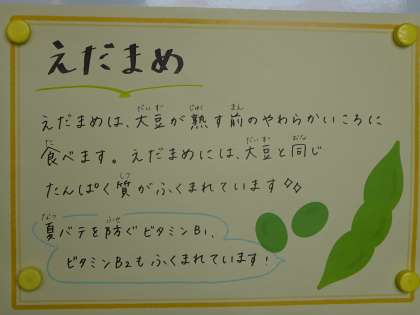 えだまめ
えだまめは、大豆が熟す前のやわらかいころに
食べます。えだまめには、大豆と同じ
たんぱく質がふくまれています
夏バテを防ぐビタミンB1、
ビタミンB2もふくまれています!